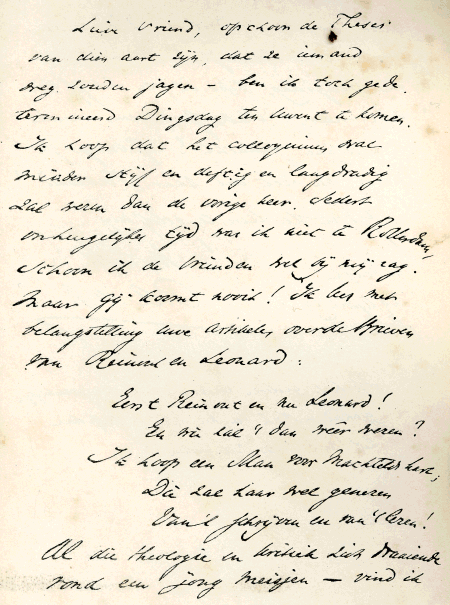 Lieve Vriend, ofschoon de Theses
van dien aart zijn, dat ze iemand
weg zouden jagen – ben ik toch gede-
termineerd Dingsdag ten Uwent te komen.
Ik hoop dat het colloquium wat
minder stijf en deftig en langdradig
zal wezen dan de vorige keer. Sedert
onheugelijke tijd was ik niet te Rotterdam,
schoon ik de Vrienden wel bij mij zag.
Maar gij komt nooit! Ik lees met
belangstelling uwe artikelen over de Brieven
van Reinout en Leonard:
Eerst Reinout en nu Leonard!
En wie zal 't dan weer wezen?
Ik hoop een Man voor Machtelds hart,
Die zal haar wel genezen
Van 't schrijven en van 't lezen!
Al die theologie en kritiek zich draaiende
rond een jong meisjen – vind ik